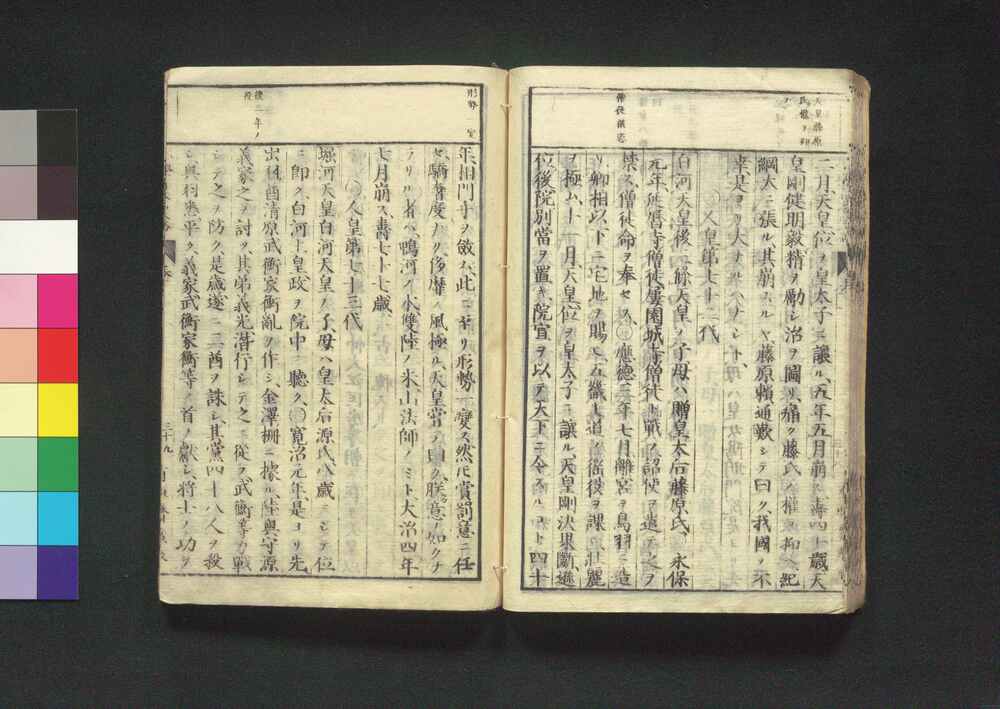 天皇藤原
氏權ヲ抑
二月天皇位ヲ皇太子ニ讓ル、五年五月崩ス、壽四十歲、天
皇剛健明敏精ヲ勵シ治ヲ圖リ、痛ク藤氏ノ權ヲ抑ヘ、紀
綱大ニ張ル、其崩スルヤ、藤原賴通歎シテ曰ク、我國ノ不
幸是ヨリ大ナルハナシト、
人皇第七十二代
白河天皇後三條天皇ノ子、母ハ贈皇太后藤原氏、永保
元年、延曆寺僧徒、園城寺僧徒ト戰フ、詔使ヲ遣テ之ヲ
禁ス、僧徒命ヲ奉セス、應德三年七月離宮ヲ鳥羽ニ造
リ、卿相以下ニ宅地ヲ賜ヒ、五畿七道ノ徭役ヲ課ス、壯麗
ヲ極ム、十一月天皇位ヲ皇太子ニ讓ル、天皇剛決果斷、遜
位後院別當ヲ置キ、院宣ヲ以テ天下ニ令スルコト四十
形勢一變
年、相門手ヲ斂ム、此ニ至リ形勢一變ス、然モ賞罰意ニ任
セ、驕奢度ナク、侈靡ノ風極ル、天皇嘗テ曰ク、朕意ノ如クナ
ラサル者ハ、鴨河ノ水、雙陸ノ采、山法師ノミト、大治四年
七月崩ス、壽七十七歲、
人皇第七十三代
堀河天皇白河天皇ノ子、母ハ皇太后源氏、八歲ニシテ位
ニ卽ク、白河上皇政ヲ院中ニ聽ク、寬治元年是ヨリ先
後三年ノ
役
出羽酋淸原武衡家衡亂ヲ作シ、金澤柵ニ據ル、陸奧守源
義家之ヲ討ツ、其弟義光潛行シテ之ニ從フ、武衡等力戰
シテ之ヲ防ク、是歲遂ニ二酋ヲ誅シ、其黨四十八人ヲ殺
シ、奧羽悉ク平ク、義家武衡家衡等ノ首ヲ獻シ、將士ノ功ヲ
三十九